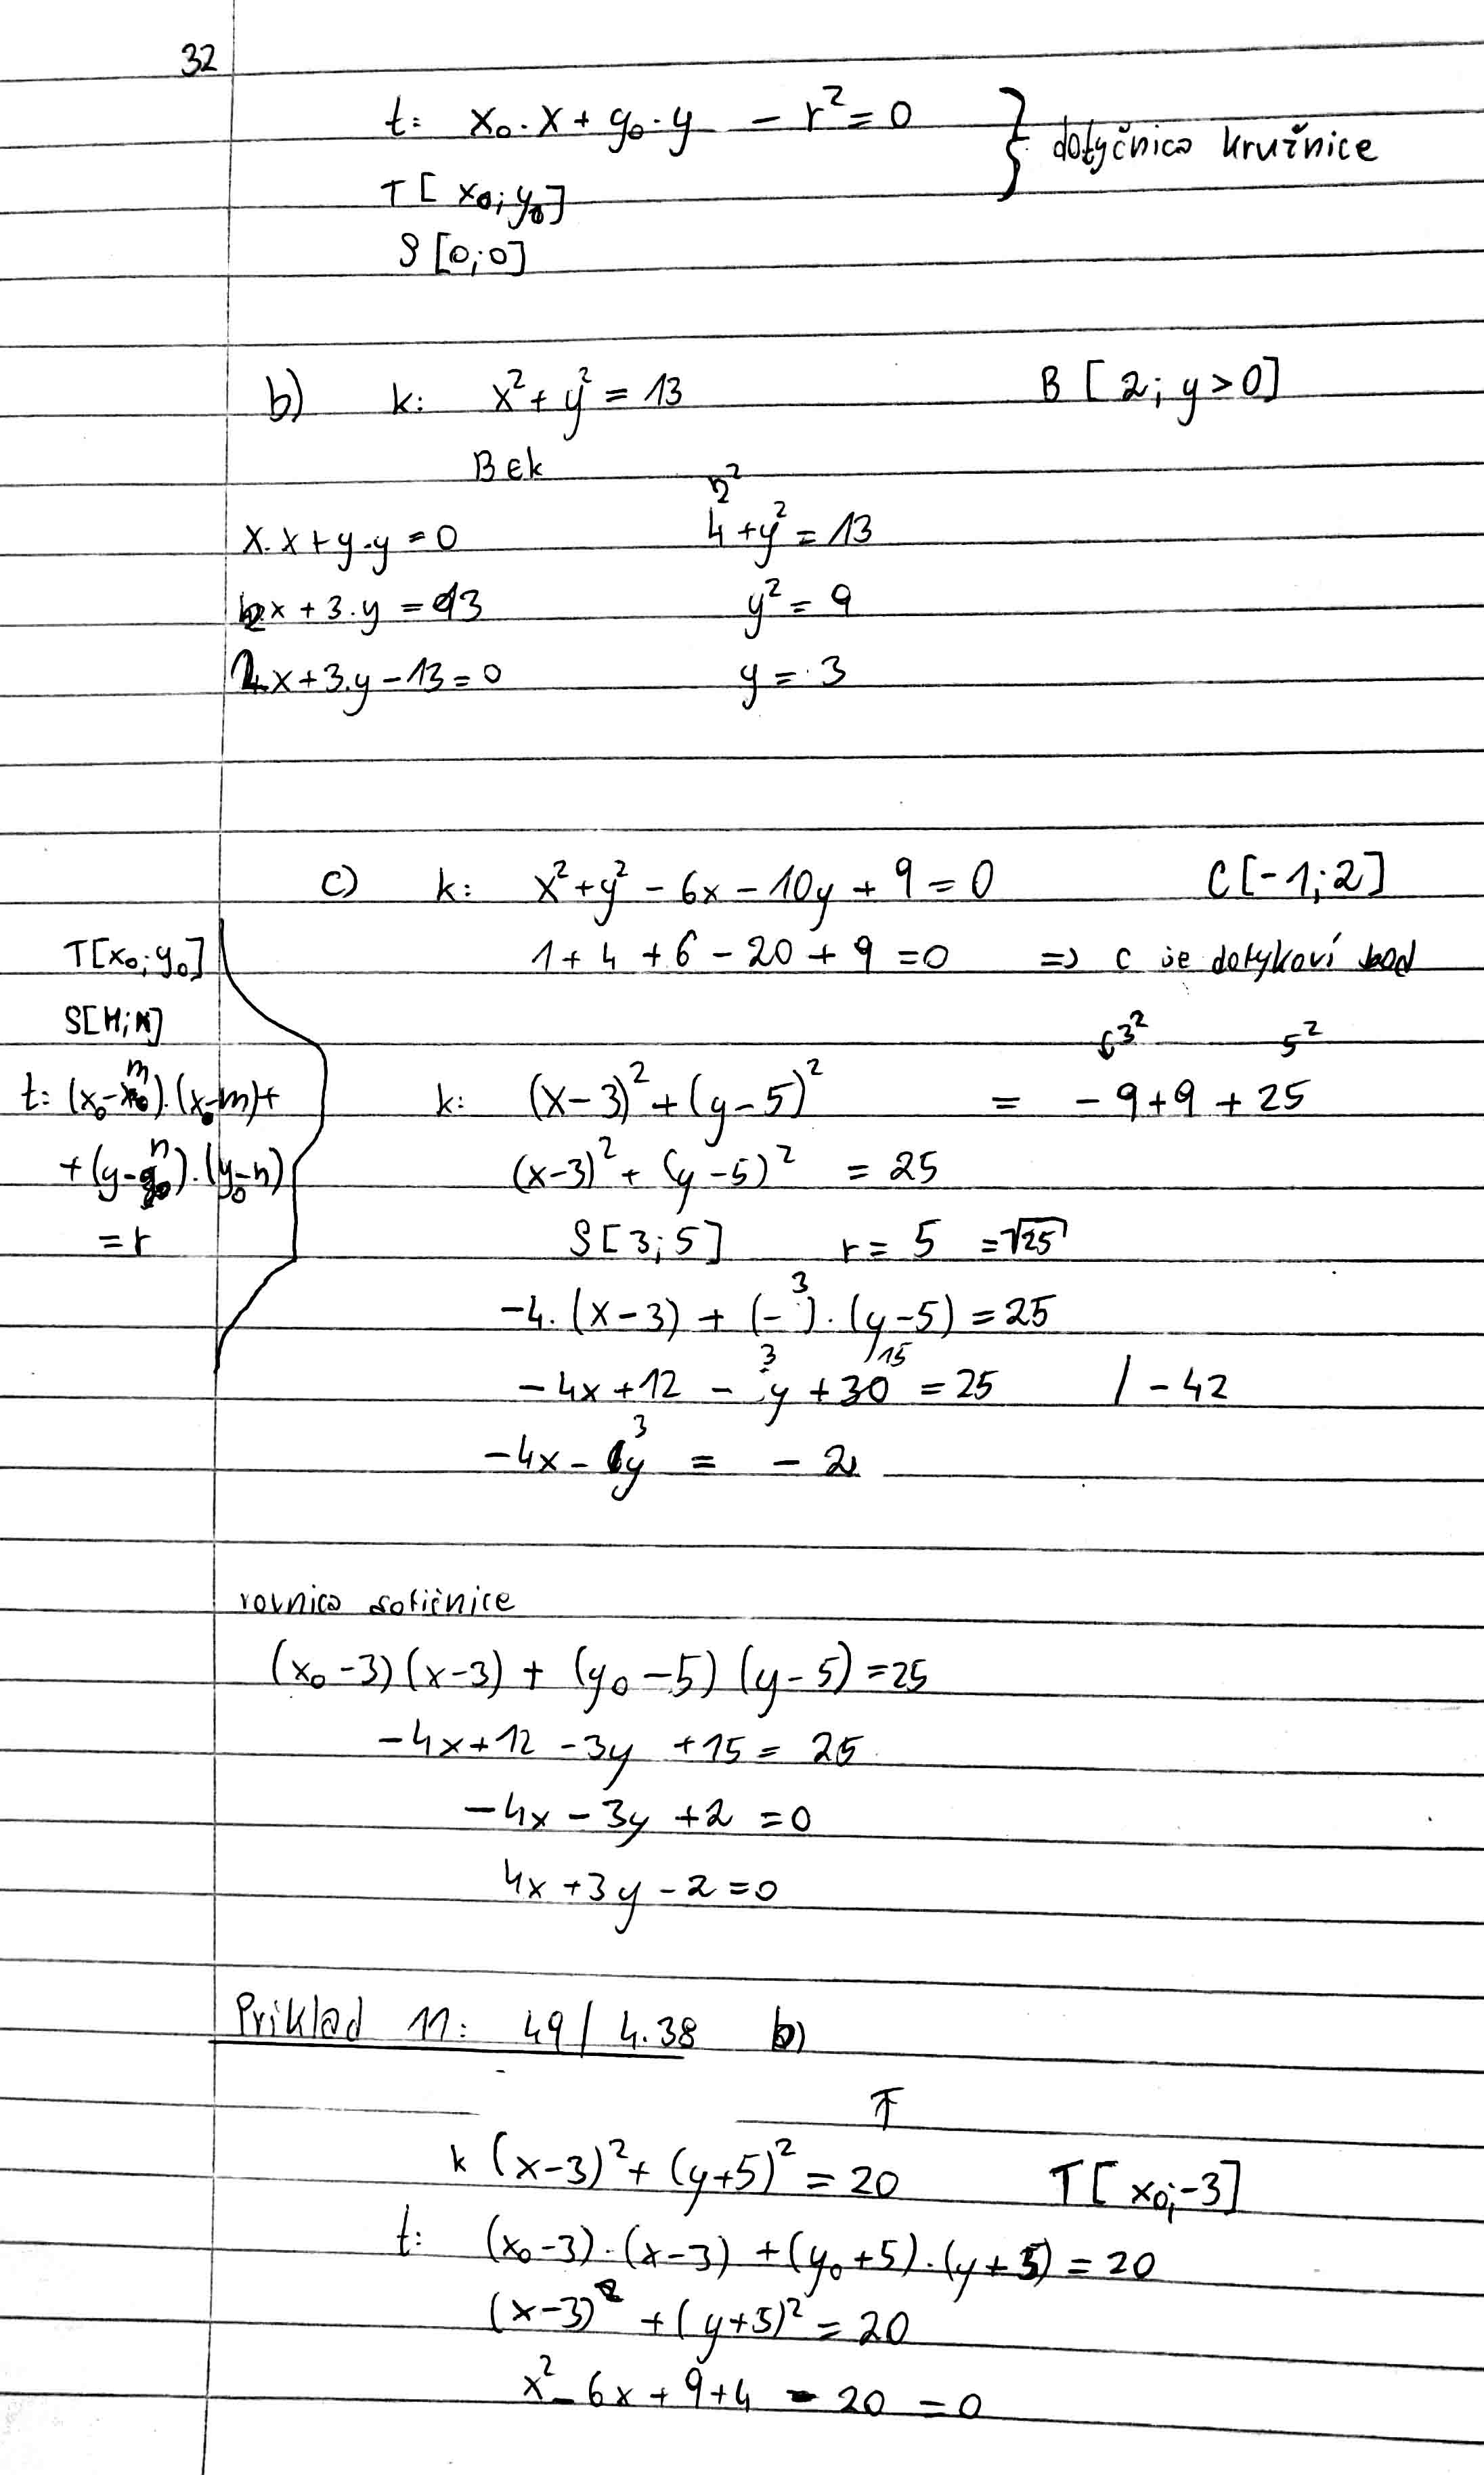 32
t: x₀·x + y₀·y - r² = 0 } dotyčnica kružnice
T[x₀; y₀]
S[0;0]
b) k: x² + y² = 13 B[2; y>0]
B∈k
2²
x·x + y·y = 0 4 + y² = 13
2x + 3·y = 13 y² = 9
2x + 3·y - 13 = 0 y = 3
c) k: x² + y² - 6x - 10y + 9 = 0 C[-1;2]
1 + 4 + 6 - 20 + 9 = 0 => C je dotykoví bod
T[x₀; y₀]
S[M;N]
t: (x₀-m)·(x-m)+
+(y-n)·(y₀-n)
= r
3² 5²
k: (x-3)² + (y-5)² = -9 + 9 + 25
(x-3)² + (y-5)² = 25
S[3;5] r = 5 = √25
-4·(x-3) + (-3)·(y-5) = 25
-4x + 12 - 3y + 30 15 = 25 / -42
-4x - 3y = -2
rovnica dotičnice
(x₀-3)(x-3) + (y₀-5)(y-5) = 25
-4x + 12 - 3y + 15 = 25
-4x - 3y + 2 = 0
4x + 3y - 2 = 0
Príklad 11: 49/4.38 b)
k (x-3)² + (y+5)² = 20 T[x₀;-3]
t: (x₀-3)·(x-3) + (y₀+5)·(y+5) = 20
(x-3)² + (y+5)² = 20
x² - 6x + 9 + 4 - 20 = 0